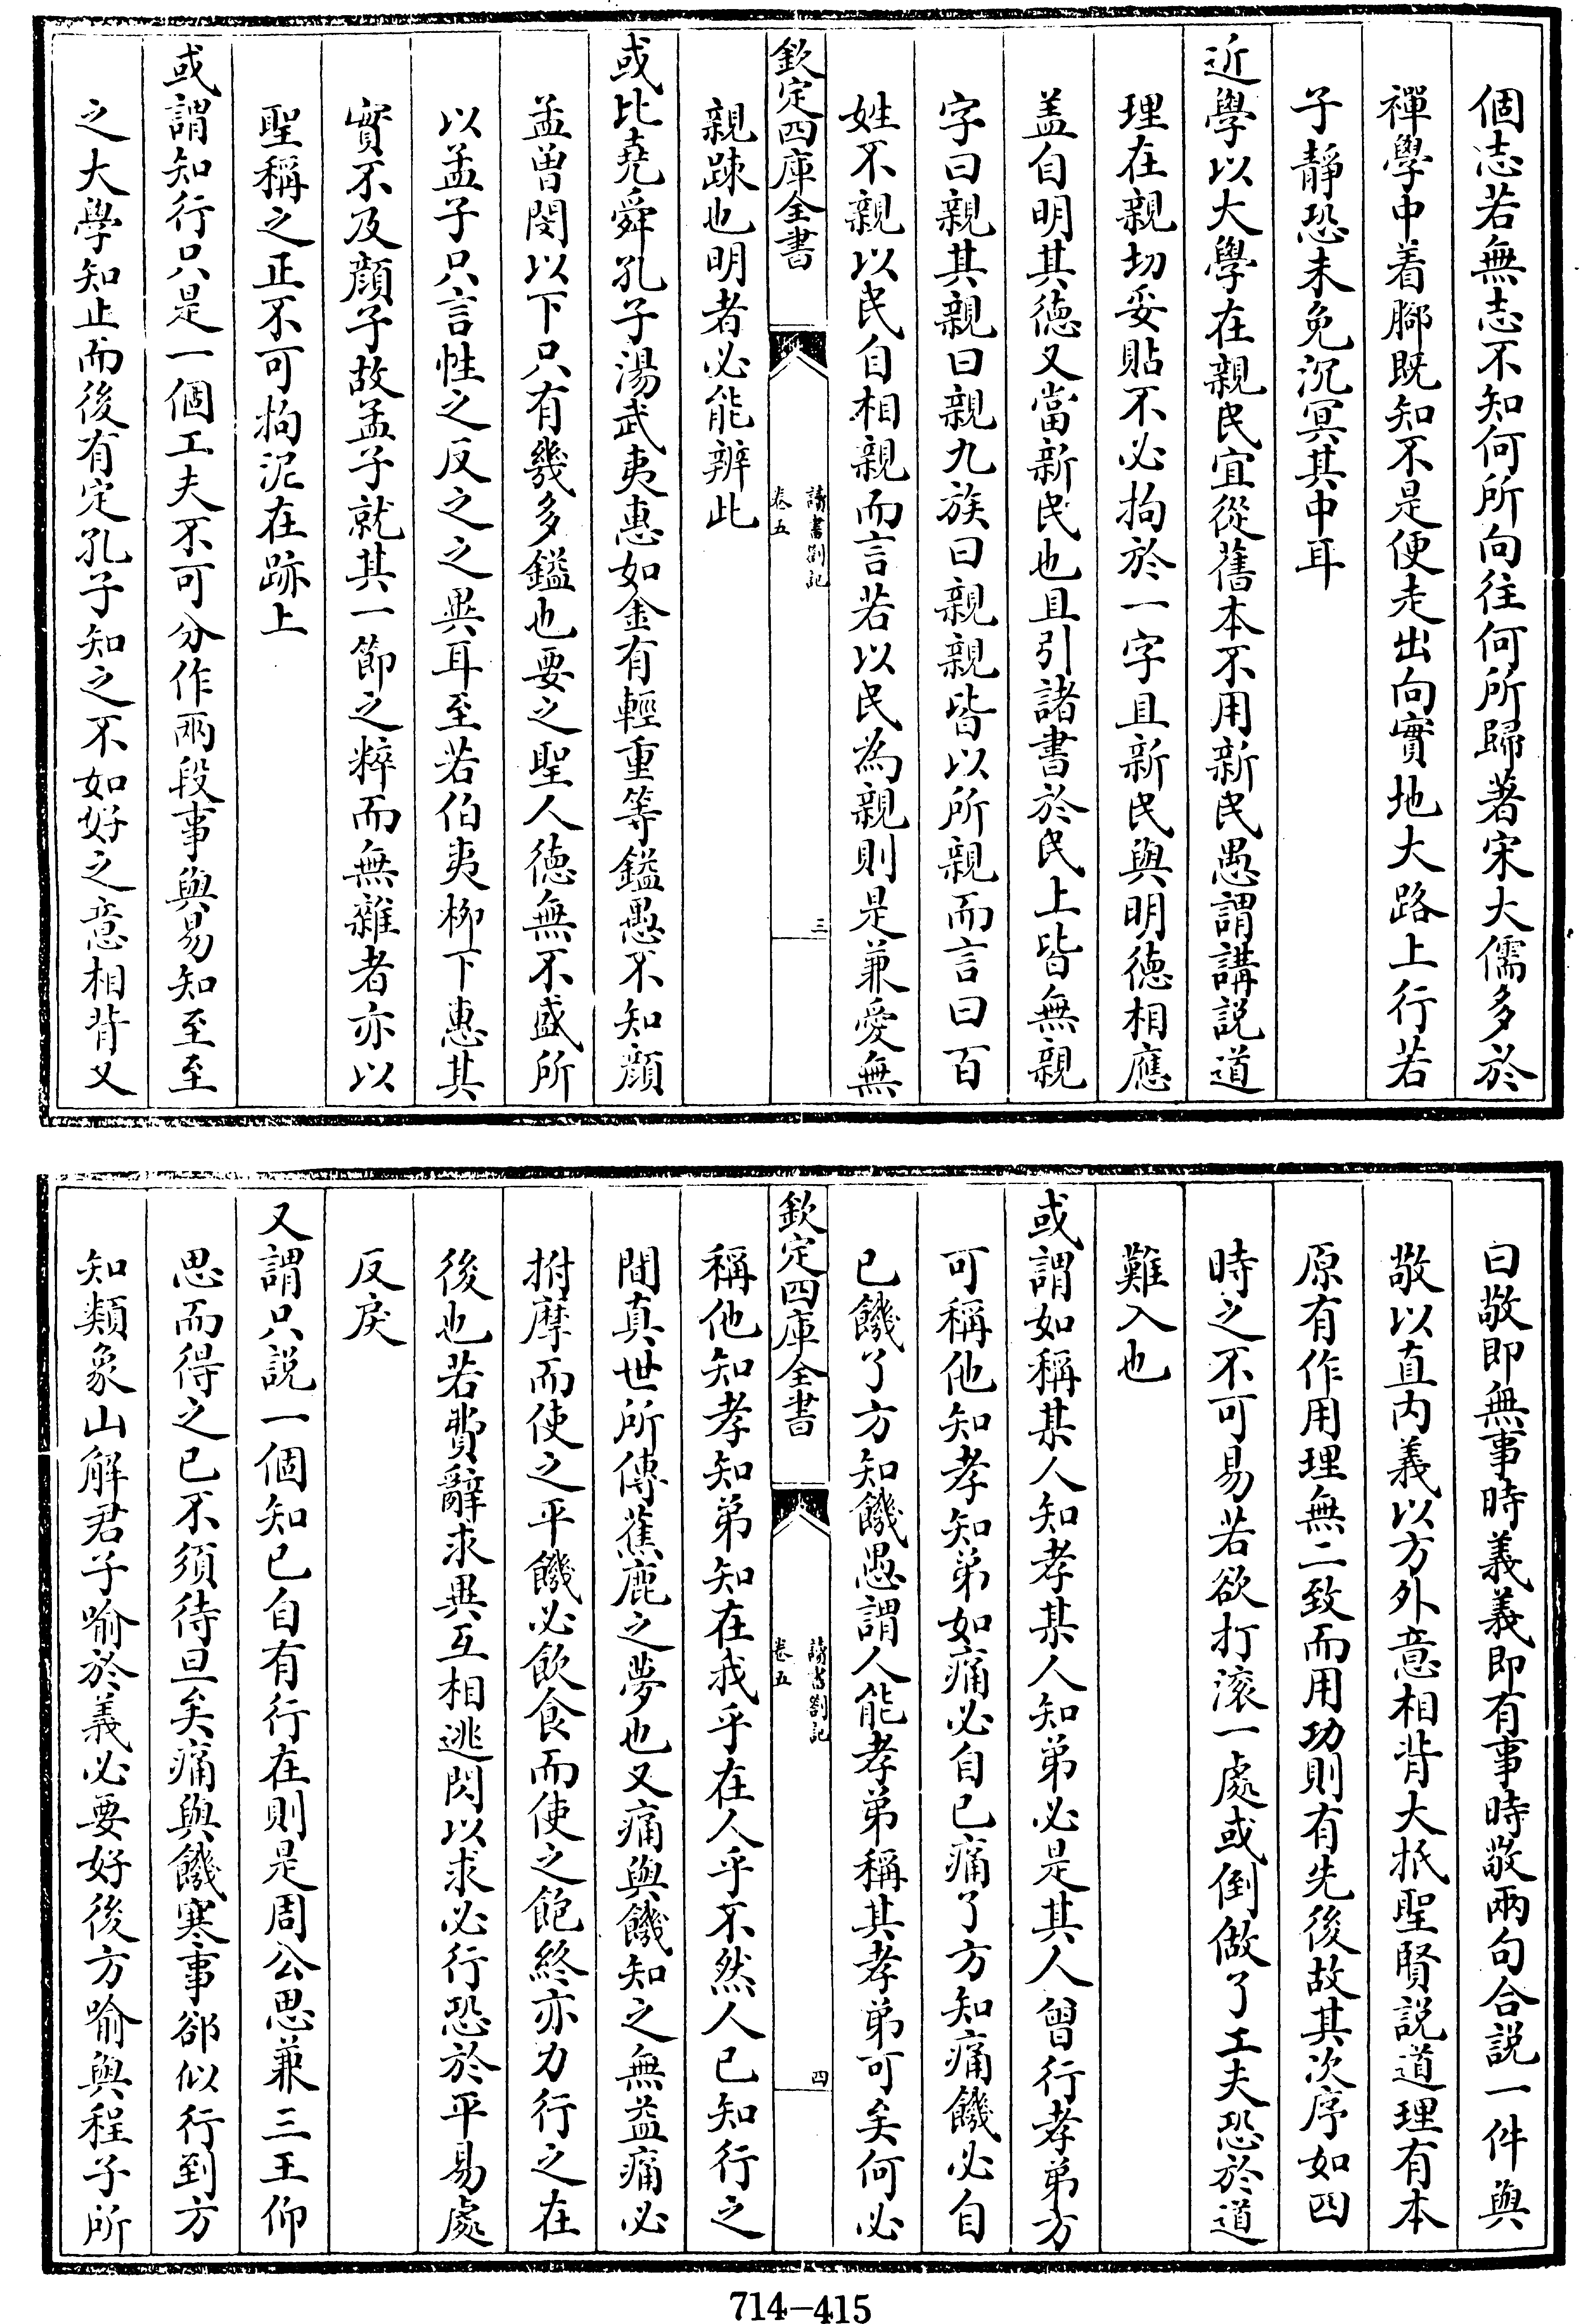 個志若無志不知何所向往何所歸著宋大儒多於
禪學中着腳既知不是便走出向實地大路上行若
子靜恐未免沉冥其中耳
近學以大學在親民宜從舊本不用新民愚謂講説道
理在親切妥貼不必拘於一字且新民與明徳相應
盖自明其徳又當新民也且引諸書於民上皆無親
字曰親其親曰親九族曰親親皆以所親而言曰百
姓不親以民自相親而言若以民為親則是兼愛無
欽定四庫全書
讀書劄記
卷五
三
親踈也明者必能辨此
或比堯舜孔子湯武夷惠如金有輕重等鎰愚不知顔
孟曽閔以下只有幾多鎰也要之聖人徳無不盛所
以孟子只言性之反之之異耳至若伯夷柳下惠其
實不及顔子故孟子就其一節之粹而無雜者亦以
聖稱之正不可拘泥在跡上
或謂知行只是一個工夫不可分作兩段事與易知至至
之大學知止而後有定孔子知之不如好之意相背又
曰敬即無事時義義即有事時敬兩句合説一件與
敬以直内義以方外意相背大抵聖賢説道理有本
原有作用理無二致而用功則有先後故其次序如四
時之不可易若欲打滚一處或倒做了工夫恐於道
難入也
或謂如稱某人知孝某人知弟必是其人曾行孝弟方
可稱他知孝知弟如痛必自已痛了方知痛饑必自
已饑了方知饑愚謂人能孝弟稱其孝弟可矣何必
欽定四庫全書
讀書劄記
卷五
四
稱他知孝知弟知在我乎在人乎不然人已知行之
間真世所傳蕉鹿之夢也又痛與饑知之無益痛必
拊摩而使之平饑必飲食而使之飽終亦力行之在
後也若費辭求異互相逃閃以求必行恐於平易處
反戾
又謂只説一個知已自有行在則是周公思兼三王仰
思而得之已不須待旦矣痛與饑寒事郤似行到方
知類象山解君子喻於義必要好後方喻與程子所
714-415